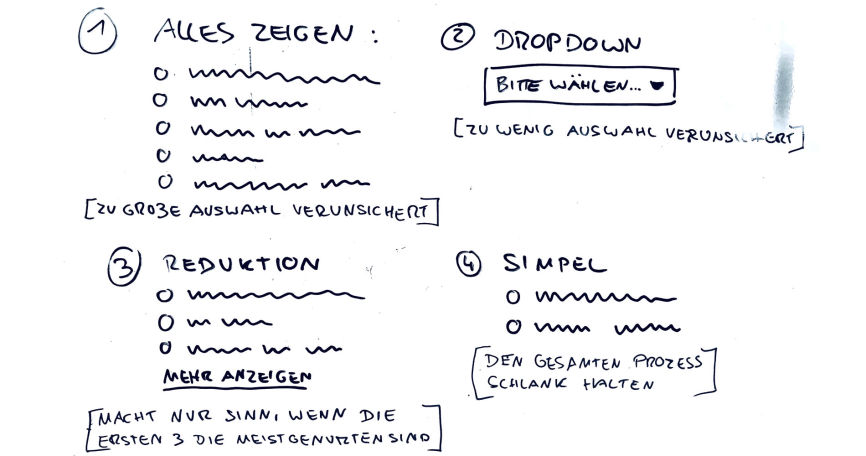 1 ALLES ZEIGEN :
[ZU GROßE AUSWAHL VERUNSICHERT]
2 DROPDOWN
BITTE WÄHLEN...
[ZU WENIG AUSWAHL VERUNSICHERT]
3 REDUKTION
MEHR ANZEIGEN
[MACHT NUR SINN, WENN DIE
ERSTEN 3 DIE MEISTGENUTZTEN SIND]
4 SIMPEL
[DEN GESAMTEN PROZESS
SCHLANK HALTEN]